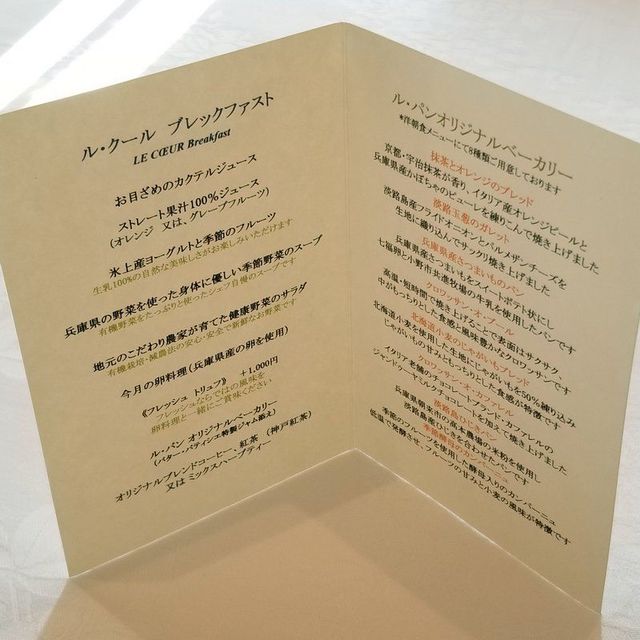 ル・クール ブレックファスト
LE CŒUR Breakfast
お目ざめのカクテルジュース
ストレート果汁100%ジュース
(オレンジ 又は、グレープフルーツ)
氷上産ヨーグルトと季節のフルーツ
生乳100%の自然な美味しさがお楽しみいただけます
兵庫県の野菜を使った身体に優しい季節野菜のスープ
有機野菜をたっぷりと使ったシェフ自慢のスープです
地元のこだわり農家が育てた健康野菜のサラダ
有機栽培・減農法の安心・安全で新鮮なお野菜です
今月の卵料理(兵庫県産の卵を使用)
《フレッシュ トリュフ》 +1,000円
フレッシュならではの風味を
卵料理と一緒にご賞味ください
ル・パン オリジナルベーカリー
(バター・パティシエ特製ジャム添え)
オリジナルブレンドコーヒー、紅茶 (神戸紅茶)
又は ミックスハーブティー
ル・パンオリジナルベーカリー
*洋朝食メニューにて8種類ご用意しております
抹茶とオレンジのブレッド
京都・宇治抹茶が香り、イタリア産オレンジピールと
兵庫県産かぼちゃのピューレを練りこんで焼き上げました
淡路玉葱のガレット
淡路島産フライドオニオンとパルメザンチーズを
生地に織り込んでサックリ焼き上げました
兵庫県産さつまいものパン
兵庫県産さつまいもをスイートポテト状にし
七福卵と小野市共進牧場の牛乳を使用したパンです
クロワッサン・オ・ブール
高温・短時間で焼き上げることで表面はサクサク、
中がもっちりとした食感と風味豊かなクロワッサンです
北海道小麦のじゃがいもブレッド
北海道小麦を使用した生地にじゃがいもを50%練り込み
じゃがいもの甘みともっちりとした食感が特徴です
クロワッサン・オ・カファレル
イタリア老舗のチョコレートブランド、カファレルの
ジャンドゥーヤミルクチョコレートを加えて焼き上げました
淡路島ひじきパン
兵庫県朝来市の高本農場の米粉を使用し
淡路島産ひじきを合わせたパンです
季節酵母のカンパーニュ
季節のフルーツを使用した酵母入りのカンパーニュ
低温で発酵させ、フルーツの甘みと小麦の風味が特徴です